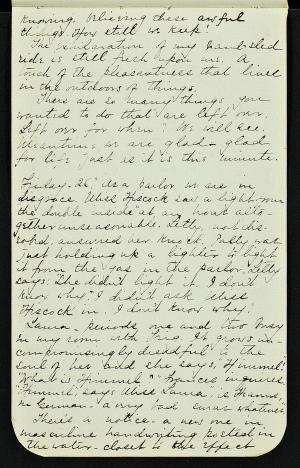 knowing, believing these awful
things. How still we keep!
The exhilaration of my
ride is still fresh upon me. A
touch of the pleasantness that lives
in the outdoors of things.
There are so many things you
wanted to do that are left over.
Left over for when? We will see.
Meantime we are glad - glad
for life just as it is this minute.
Friday. 26, As a parlor we are in
disgrace. Miss Hiscock saw a light from
the double inside at an hour alto-
gether unseasonable. Letty, not dis-
robed, answered her knock. Sally was
just holding up a lighter to light
it from the gas in the parlor. Letty
says: "She didn't light it. I don't
know why I didn't ask Miss
Hiscock in. I don't know why."
Laura - periods one and two busy
in my room with Prag. It grows un-
compromisingly dreadful to the
soul of her and she says, "Himmel!"
"What is Himmel?" Frances inquires.
"Himmel," says Miss Laura, "is Heaven,"
in German - a very bad curse whatever.
There's a notice - a new one in
masculine handwriting posted in
the water-closet to this effect